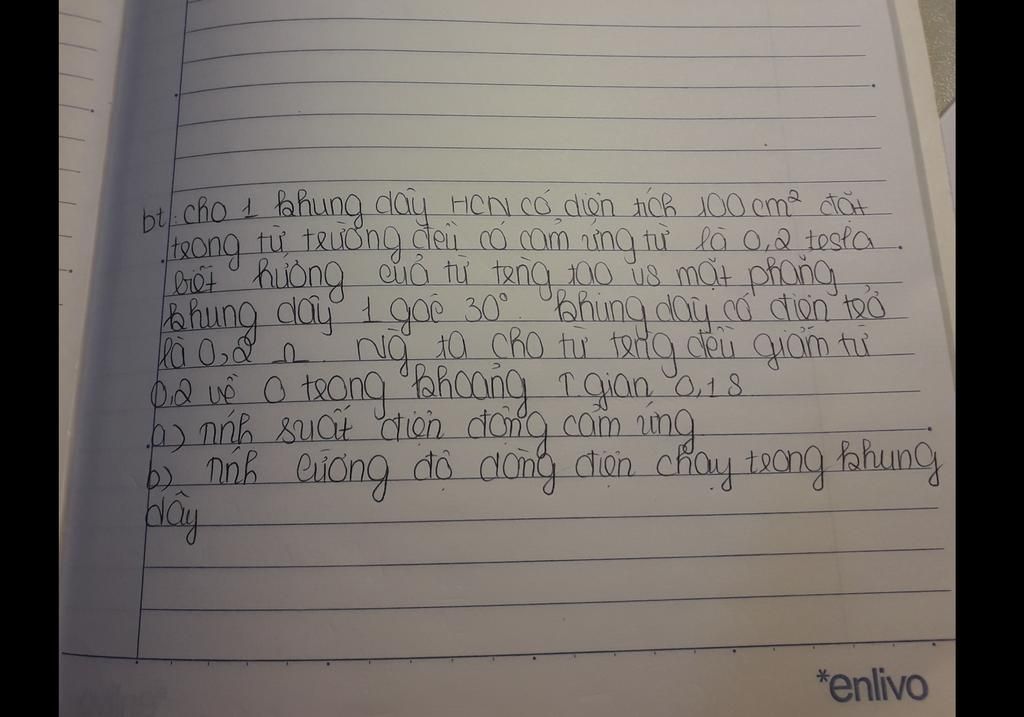 bt: cho 1 khung dây HCN có diện tích 100 cm² đặt
trong từ trường đều có cảm ứng từ là 0,2 tesla.
biết hướng của từ trờng tạo vs mặt phẳng
khung dây 1 góc 30°. khung dây có điện trở
là 0,2 Ω. Ng ta cho từ trờng đều giảm từ
0,2 về 0 trong khoảng T gian 0,1s
a) Tính suất điện động cảm ứng
b) Tính cường độ dòng điện chạy trong khung
dây
*enlivo